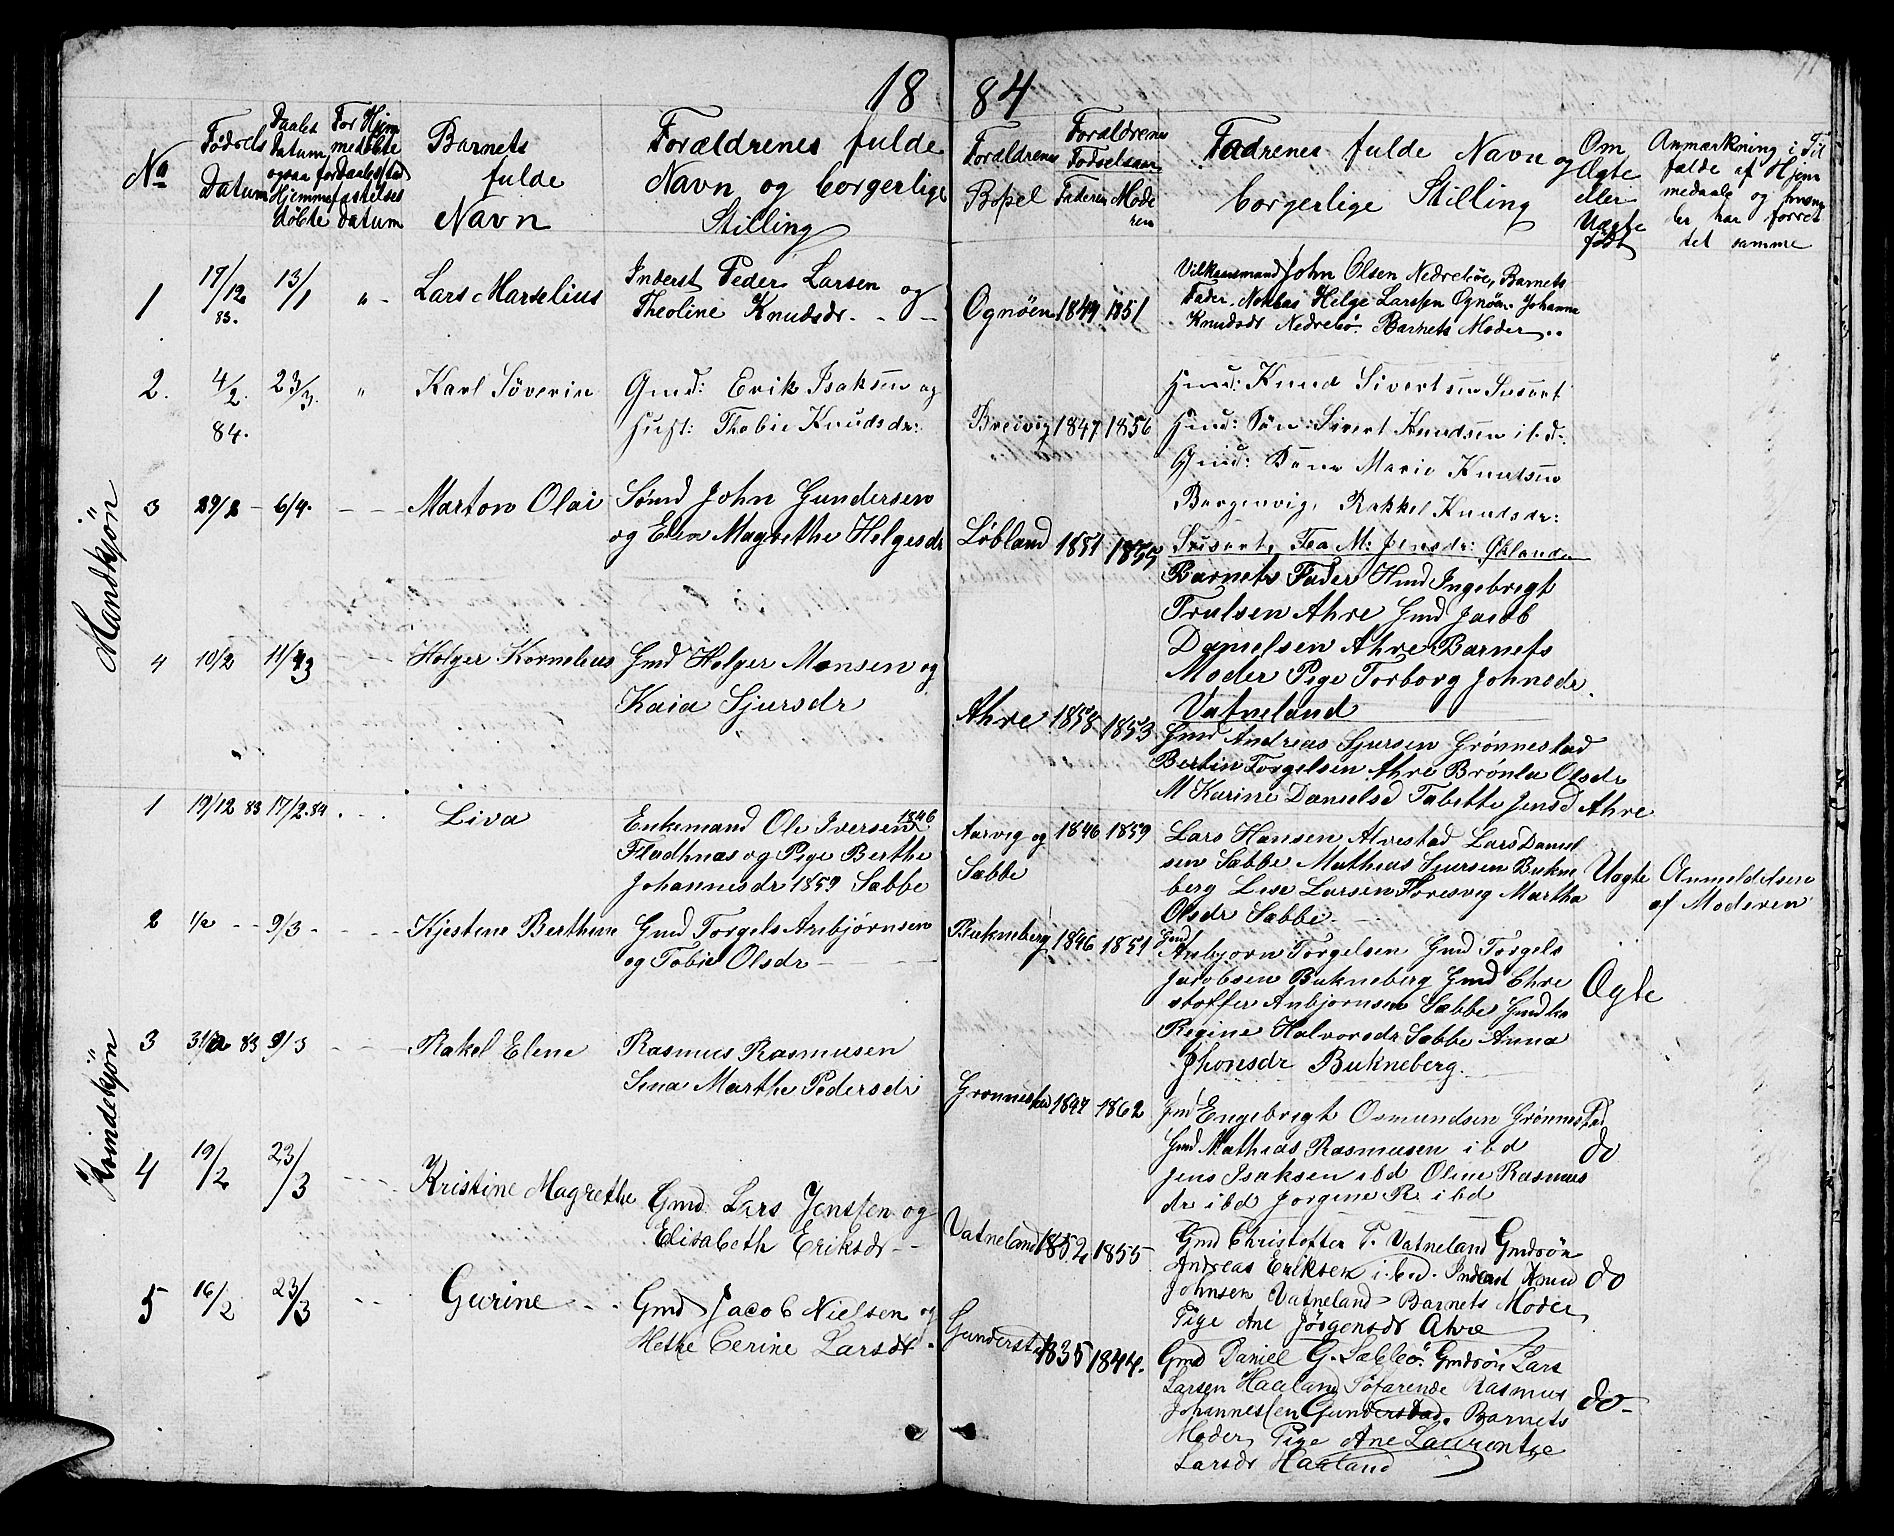 18 84
No
Fødsels Datum
Daabs Datum ogsaa for Hjemme døbte
For Hjem medøbte Daabs Sted fastelses datum
Barnets fulde Navn
Forældrenes fulde Navn og borgerlige Stilling
Forældrenes Bopel
Forældrenes Fødselsaar
Faderen Mode ren
Fadrenes fulde Navn og borgerlige Stilling
Om Ægte eller Uægte født
Anmærkning i Til fælde af Hjem medaab og hvem der har forret tet samme
Mandkjøn
1 17/12 83. 13/1 " - Lars Marselius
Inderst Peder Larsen og
Theoline Knudsdr. - - -
Ognöen 1849 1851
John Olsen Nedreböe, Barnets
Fader, Helge Larssen Ognöen. Johanne
Knudsdr Nedrebö. Barnets Moder..
2. 4/2. 84. 23/3. " Karl Söverin
Gmd: Erik Isaksen og
Hust: Thobie Knudsdr:
Breivig 1847 1856
Hmd: Knud Sivertsen Susort
Hmd: Søn: Sivert Knudsen ibd:
Gmd: Marie Knudsen
Borgenvig, Rakkel Knudsdr:
Susort, Tea M: Jensdr: Økland
3 29/2 - 6/4. - - - Marton Olai
Sømd John Gundersen
og Elen Magrethe Helgesdr
Løbland 1851 1855
Barnets Fader Hmd Ingebregt
Trulsen Ahre Gmd Jacob
Danielsen Ahre Barnets
Moder Pige Torborg Johnsdr.
Vatneland
4 10/2 11/3 - - - Holger Kornelius
Gmd Holger Monsen og
Kaia Sjursdr
Ahre 1858 1853
Gmd Andreas Sjursen Grönnestad
Bertin Torgelsen Ahre Brönla Olsdr
M Karine Danielsd Tabette Jensd Ahre
Kvindekjön
1 19/12 83 17/2.84. - - Liva
Enkemand Ole Iversen 1846
Fladhnæs og Pige Berthe
Johannesdr 1859 Sabbe
Aarvig og 1846 1859
Sabbe
Lars Hansen Alvestad Lars Daniel
sen Sabbe Mathias Sjursen Bukne
berg Lise Larsen Toresvig Martha
Olsdr Sabbe
Uagte
Anmeldelsen
af Moderen
2 1/2 - - 9/3 - - - - Kjestene Berthine
Gmd Torgels Anbjørnsen
og Tobie Olsdr
Bukneberg 1846 1851
Gmd
Anbjorn Torgelsen Gmd Torgels
Jacobsen Bukneberg Gmd Chre
stoffer Anbjornsen Sabbe Gmdko
Regine Halvorsdr Sabbe Anna
Jhonsdr Bukneberg.
Ogte
3 31/12 83 9/3 - - - Rakel Elene
Rasmus Rasmusen
Sina Marthe Pedersdr
Gronnestad 1847 1862
Gmd Engebregt Osmundsen Grönnestad
Gmd Mathias Rasmusen ibd
Jens Isaksen ibd Oline Rasmus
dr ibd Jorgine R. ibd
do
4 19/2 23/3 - - - Kristine Magrethe
Gmd. Lars Jenssen og
Elisabeth Eriksdr - -
Vatneland 1852 1855
Gmd Christoffer T. Vatneland Gmdsön
Andreas Eriksen i.b.d. Inderst Knud
Johnsen Vatneland - Barnets Moder
Pige Ane Jörgensdr Ahre
do
5 16/2 23/3 - - Gurine - -
Gmd Jacob Nielsen og
Methe Cerine Larsdr.
Gunderstad 1835 1844.
Gmd Daniel G. Sæbbö. Gmdsön Lars
Larsen Haaland Söfarende Rasmus
Johannessen Gunderstad. Barnets
Moder, Pige Ane Laurentse
Larsdr Haaland
do -